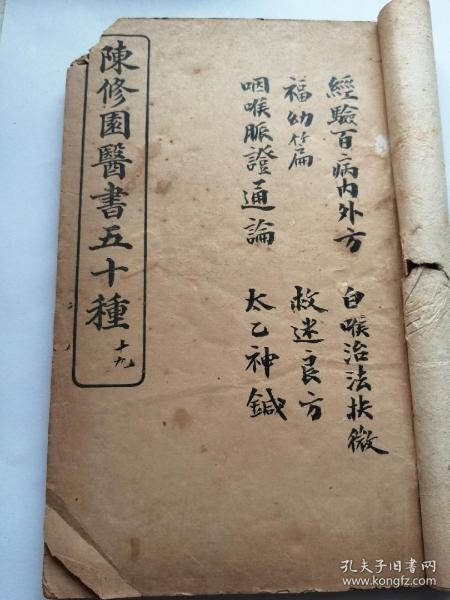 經驗百病內外方
白喉治法抉微
福幼篇
救迷良方
咽喉脈證通論
太乙神鍼
陳修園醫書五十種
十九
孔夫子旧书网
www.kongfz.com